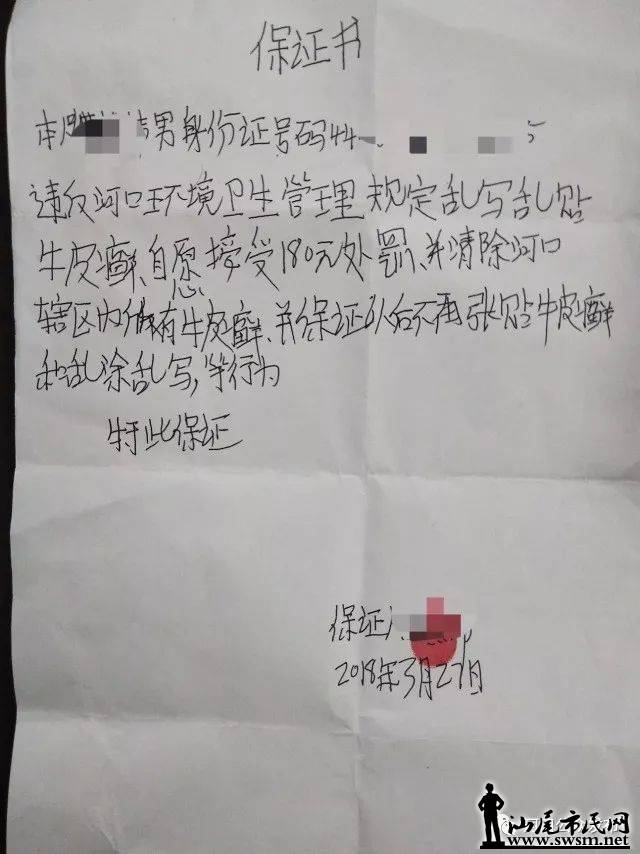 保证书
本人 男身份证号码44
违反河口环境卫生管理规定乱写乱贴
牛皮癣、自愿接受180元处罚、并清除河口
辖区内所有牛皮癣、并保证以后不再张贴牛皮癣
和乱涂乱写,等行为
特此保证
保证人
2018年3月27日
汕尾市民网
www.swsm.net